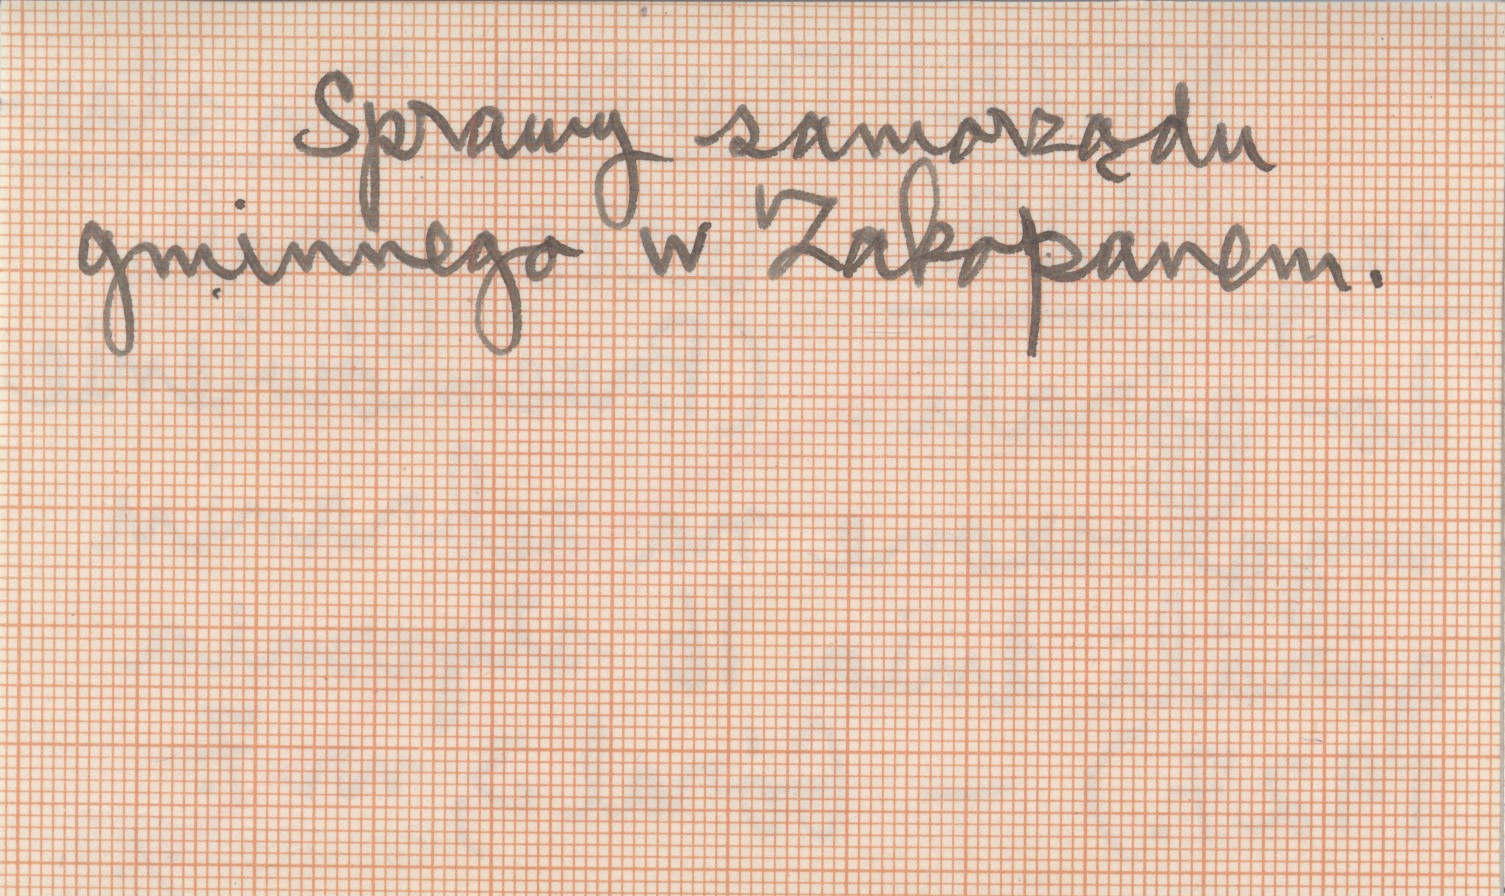 Sprawy samorządu
gminnego w Zakopanem.